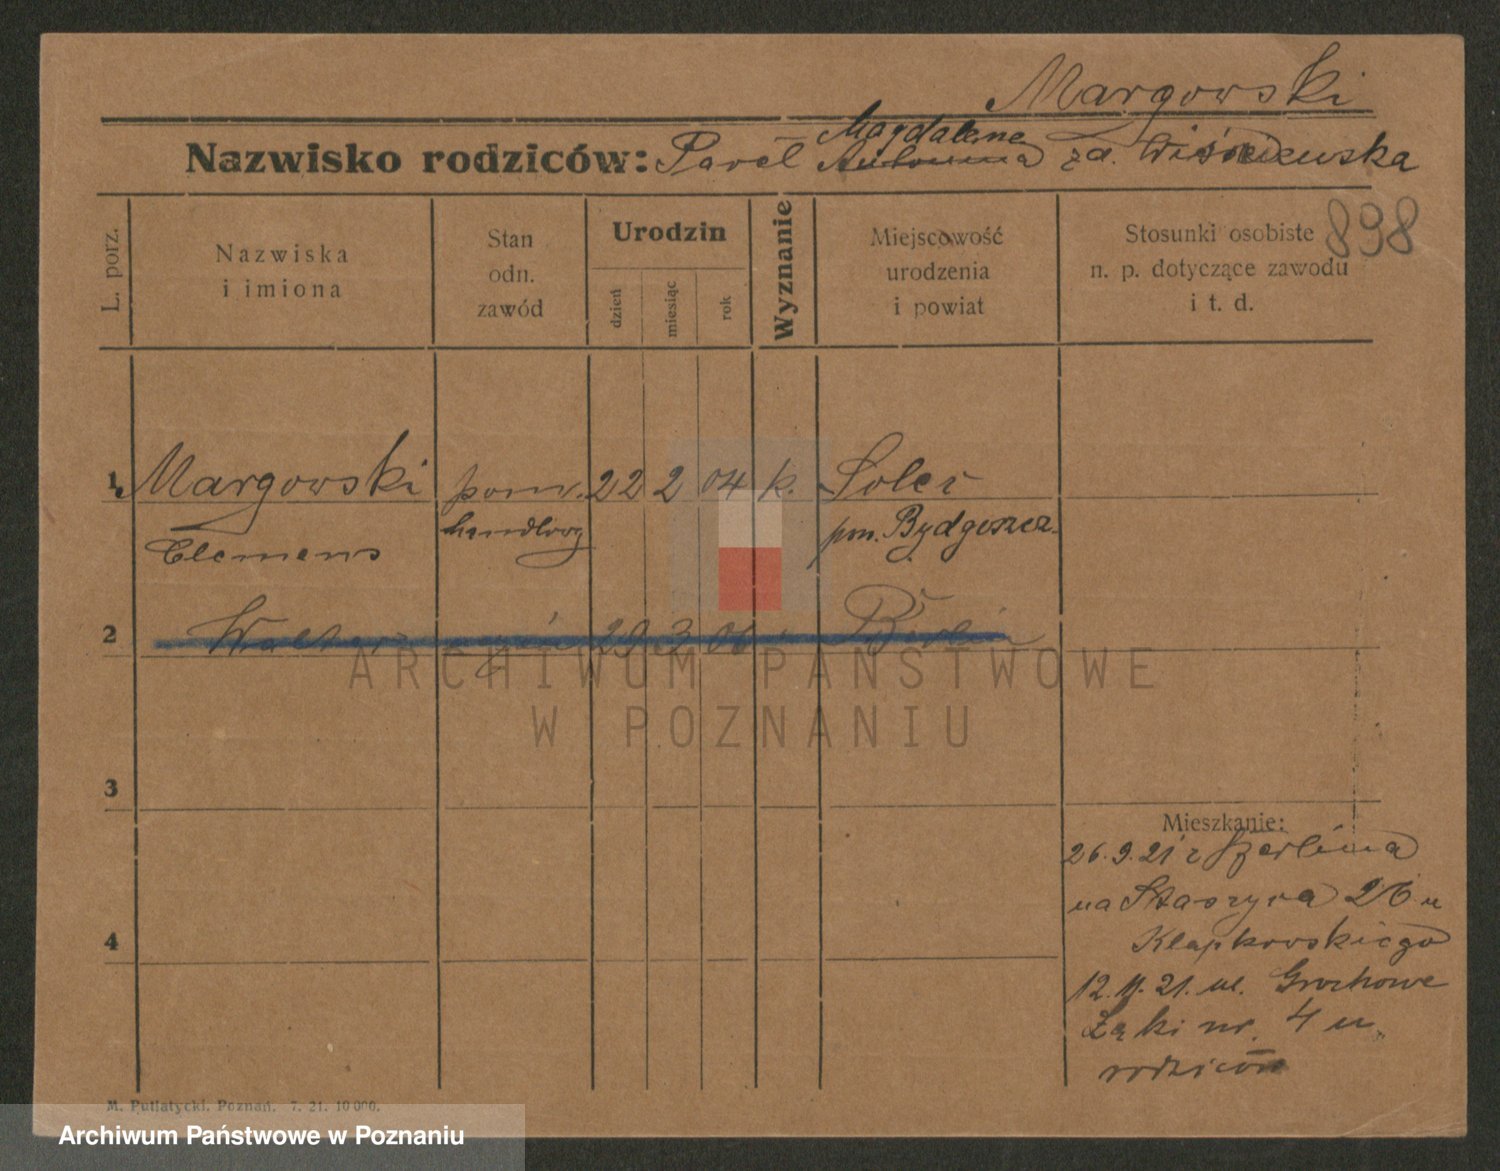 Margowski
Nazwisko rodziców: Paweł Magdalene Antonina zd. Wiśniewska
898
L. porz.
Nazwiska
i imiona
Stan
odn.
zawód
Urodzin
dzień
miesiąc
rok
Wyznanie
Miejscowość
urodzenia
i powiat
Stosunki osobiste
n. p. dotyczące zawodu
i t. d.
1 Margowski pom. 22 2 04 k. Solec
Clemens handlowy pow. Bydgoszcz
2 Walter syn 29 3 06 Berlin
3
4
Mieszkanie:
26.9.21 z Berlina
na Staszyca 26 u
Klapkowskiego
12.11.21. ul. Grochowe
Łąki nr. 4 u
rodziców
M. Putiatycki. Poznań. 7. 21. 10 000.
ARCHIWUM PAŃSTWOWE
W POZNANIU
Archiwum Państwowe w Poznaniu